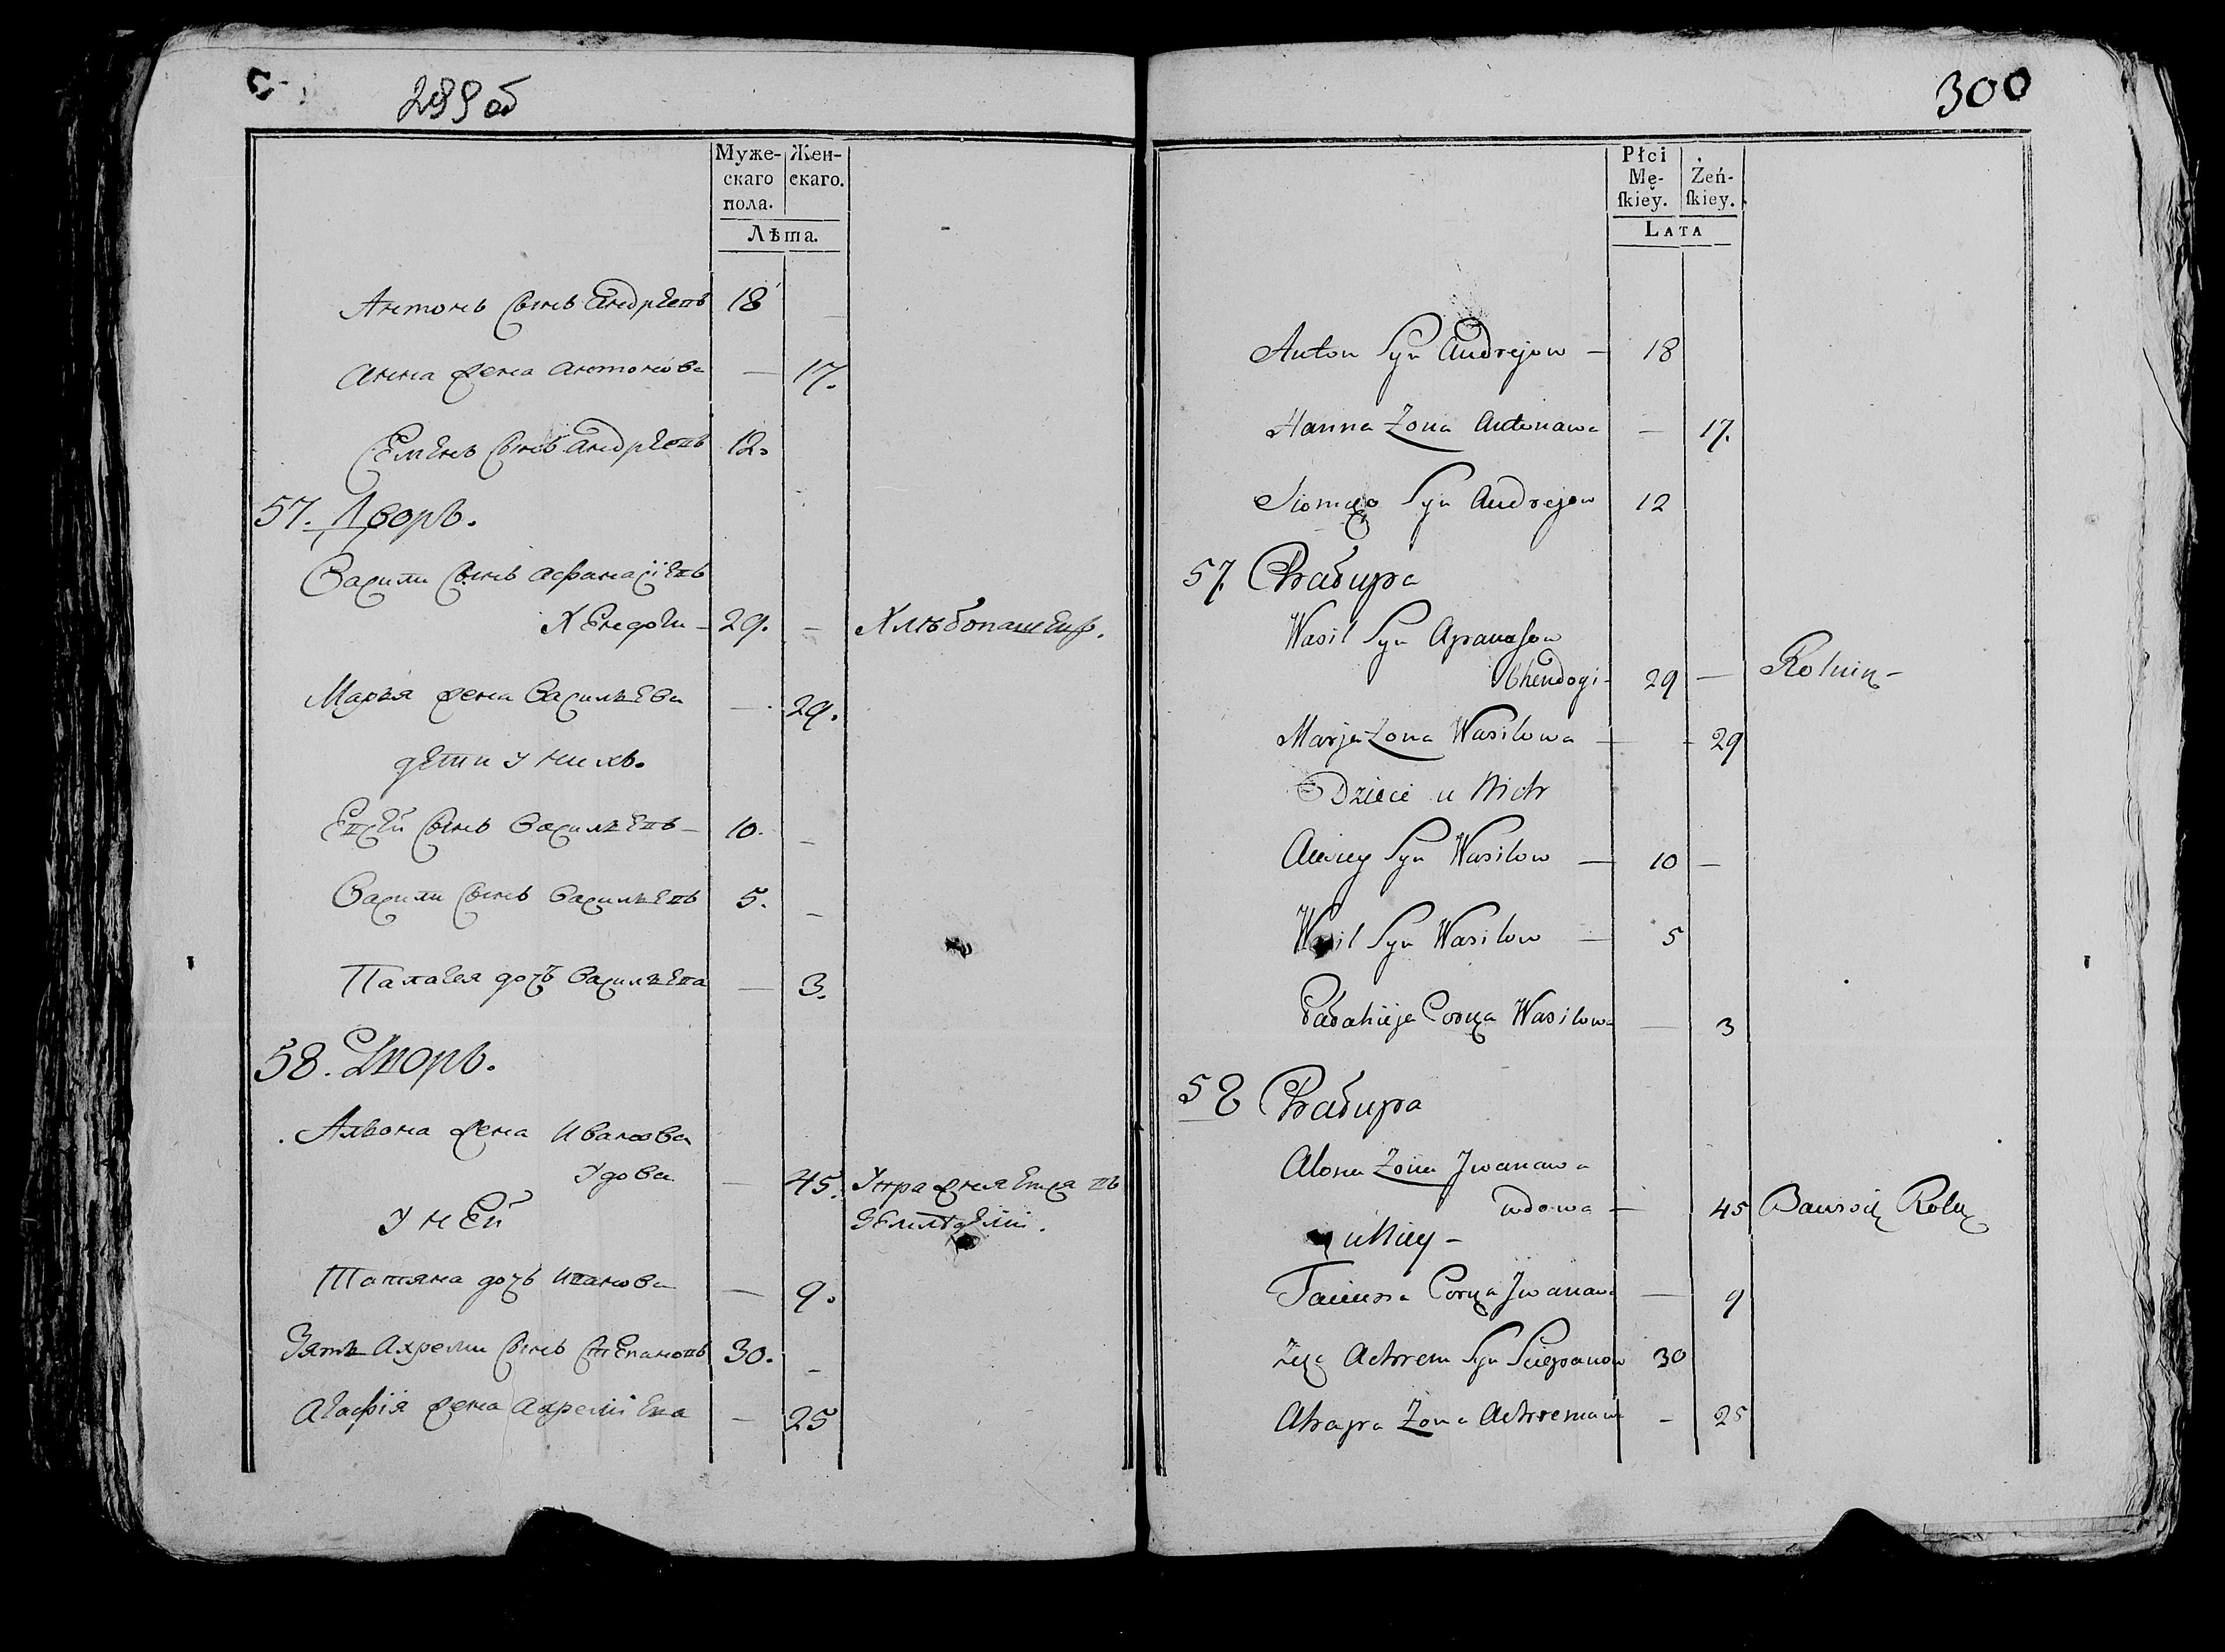 299 об
Муже- Жен-
скаго скаго.
пола.
Лѣта.
Антонъ Сынъ Андрѣевъ 18
Анна жена Антонова — 17.
Семенъ Сынъ Андрѣевъ 12.
57. Дворъ.
Васили Сынъ Афанасіевъ
Хендоги — 29. — Хлѣбопашец.
Марья жена Васильева — 29.
дети у нихъ.
Евсей Сынъ Васильевъ — 10. —
Васили Сынъ Васильевъ 5. —
Палагея дочъ Васильева — 3.
58. Дворъ.
Альона жена Иванова
Удова — 45. Упражняется въ
земледеліи.
У ней
Татяна дочъ Иванова — 9.
Зять Ахреми Сынъ Степановъ 30. —
Агафія жена Ахреміева — 25
300
Płci
Mę- Żeń-
skiey. skiey.
Lata
Anton Syn Andrejow — 18
Hanna Zona Antonawa — 17.
Siomen Syn Andrejow 12
57. Chałupa
Wasil Syn Apanasow
Chendogi — 29 — Rolnik —
Marja Zona Wasilowa — — 29
Dzieci u Nich
Syn Wasilow — 10 —
Wasil Syn Wasilow — 5
Corka Wasilowa — 3
58 Chałupa
Alona Zona Jwanawa
wdowa — 45 Rolą
u Niey —
Corka Jwanawa — 9
Achrem Syn Sciepanow 30
Zona Achremawa — 25